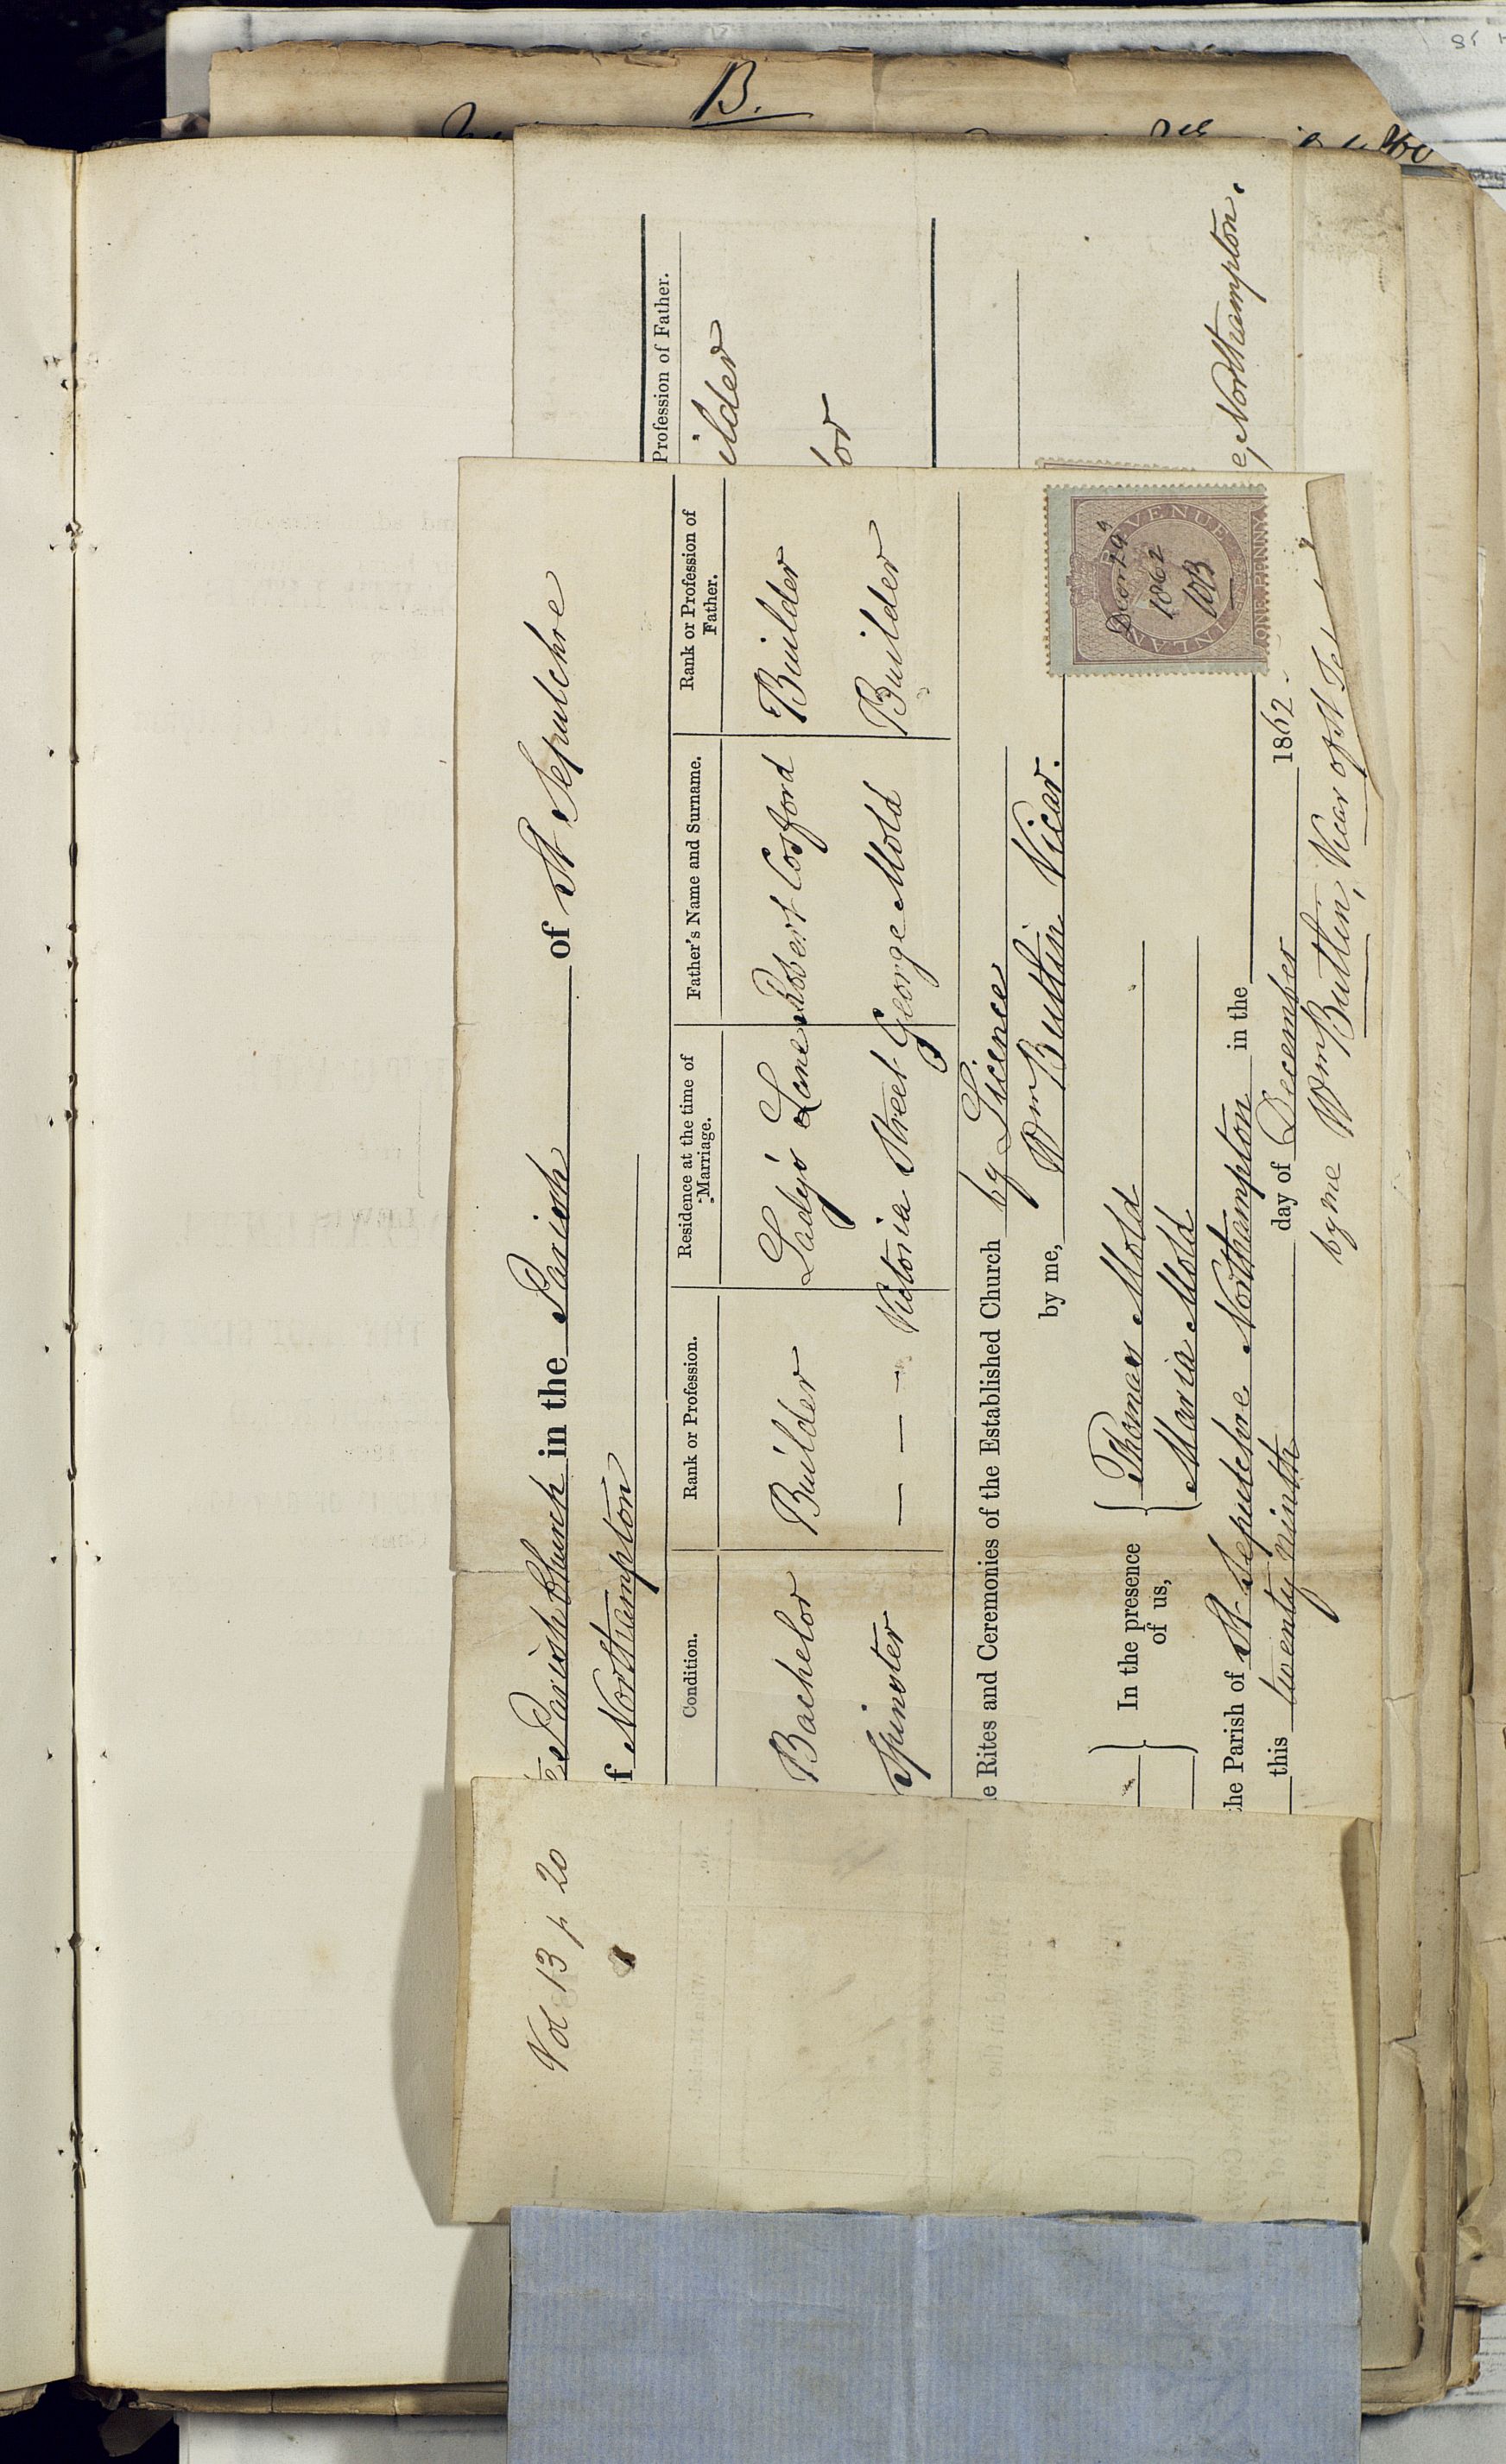 B.
Profession of Father.
ilder
lor
e, Northampton.
Parish Church in the Parish of St Sepulchre
f Northampton
Condition. Rank or Profession. Residence at the time of Marriage. Father's Name and Surname. Rank or Profession of Father.
Bachelor Builder Lady's Lane Robert Cosford Builder
Spinster — — — Victoria Street George Mold Builder
e Rites and Ceremonies of the Established Church by Licence
by me, Wm Butlin Vicar.
In the presence of us, { Thomas Mold
Maria Mold
the Parish of St Sepulchre Northampton in the
this twenty ninth day of December 1862.
by me Wm Butlin, Vicar of St Se
INLAND REVENUE
ONE PENNY
Decr 29
1862
WB
Vol 13 p 20